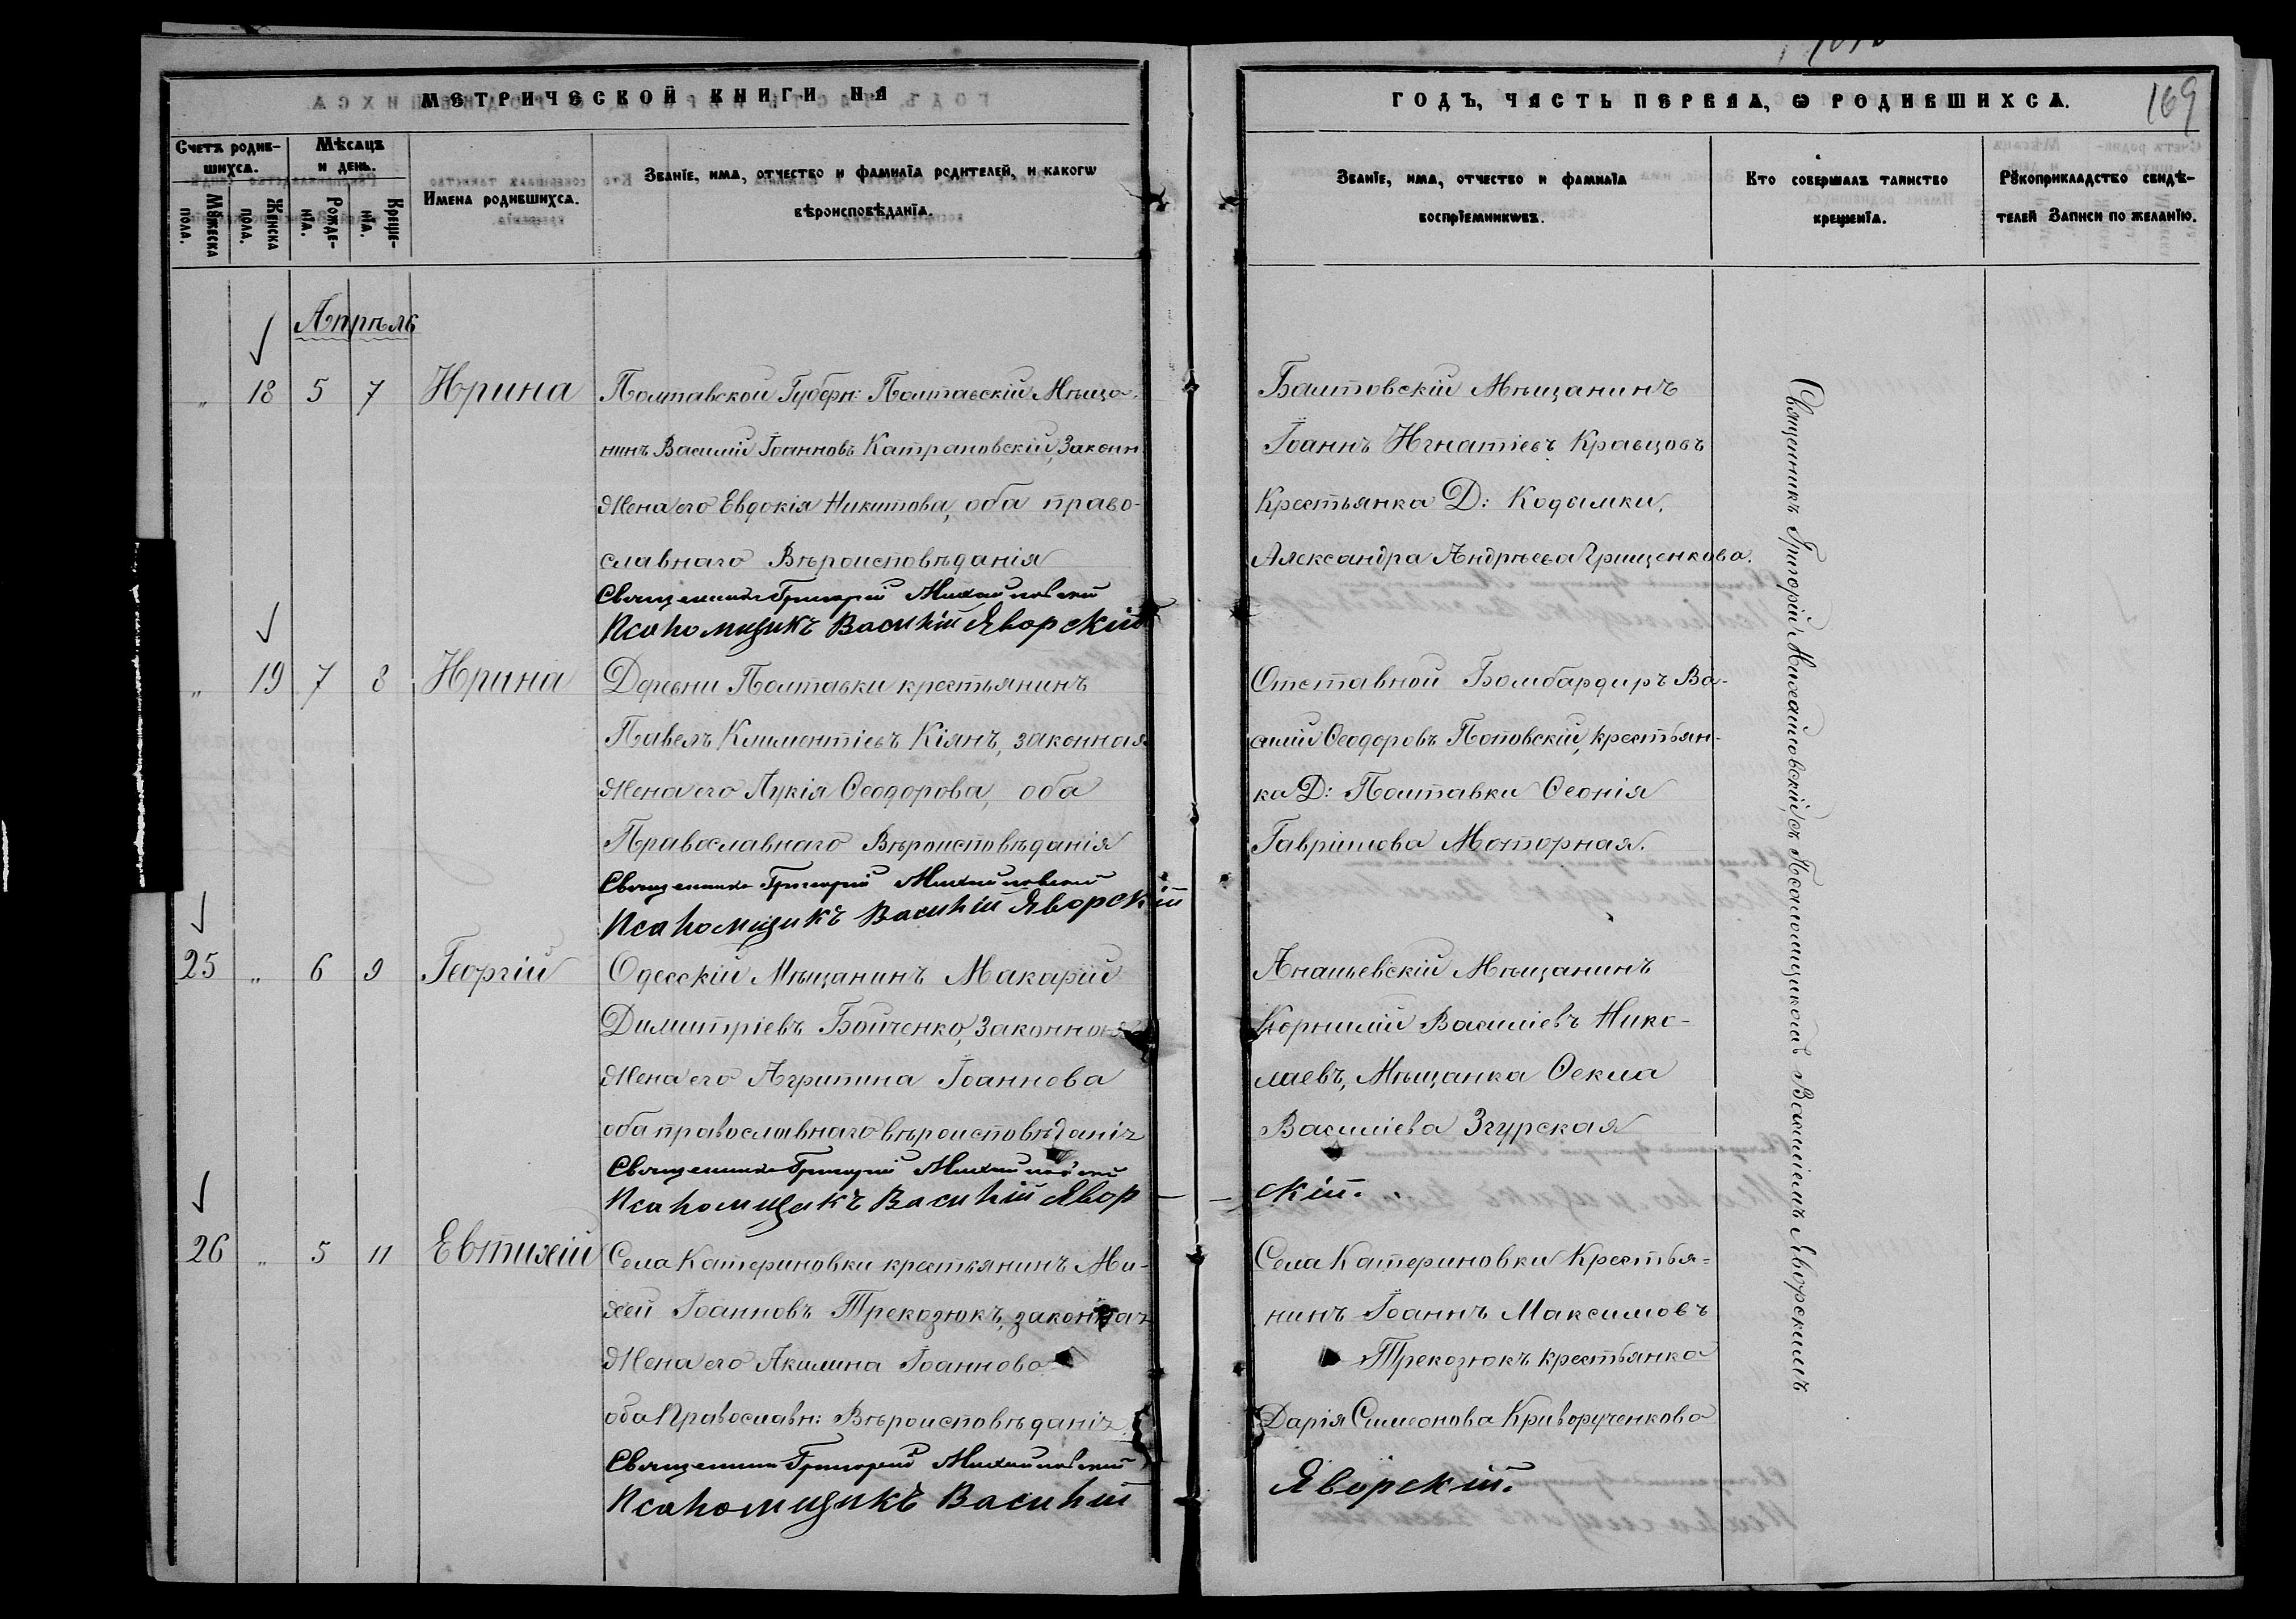 МЕТРИЧЕСКОЙ КНИГИ НА
Счетъ родившихся.
Мѣсяцъ и день.
Мужеска пола.
Женска пола.
Рожденія.
Крещенія.
Имена родившихся.
Званіе, имя, отчество и фамилія родителей, и какогѡ
вѣроисповѣданія.
Апрѣль
„ 18 5 7 Ирина
Полтавской Губерн: Полтавскій Мѣща-
нинъ Василій Іоанновъ Катрановскій, Законн
Жена его Евдокія Никитова, оба право-
славнаго Вѣроисповѣданія
Священникъ Григорій Михайловскій
Псаломщикъ Василій Яворскій
„ 19 7 8 Ирина
Деревни Полтавки крестьянинъ
Павелъ Климентіевъ Кіянъ, законная
Жена его Лукія Ѳеодорова, оба
Православнаго Вѣроисповѣданія
Священникъ Григорій Михайловскій
Псаломщикъ Василій Яворскій
25 „ 6 9 Георгій
Одесскій Мѣщанинъ Макарій
Димитріевъ Бойченко, Законная
Жена его Агрипина Іоаннова
оба православнаго вѣроисповѣданія
Священникъ Григорій Михайловскій
Псаломщикъ Василій Явор-
26 „ 5 11 Евтихій
Села Катериновки крестьянинъ Ми-
хей Іоанновъ Трекозюкъ, законная
Жена его Акилина Іоаннова
оба Православн: Вѣроисповѣданія
Священникъ Григорій Михайловскій
Псаломщикъ Василій
ГОДЪ, ЧАСТЬ ПЕРВАЯ, Ѡ РОДИВШИХСЯ.
169
Званіе, имя, отчество и фамилія
воспріемникѡвъ.
Кто совершалъ таинство
крещенія.
Рукоприкладство свидѣ-
телей Записи по желанію.
Балтовскій Мѣщанинъ
Іоаннъ Игнатіевъ Кравцовъ
Крестьянка Д: Кодымки,
Александра Андрѣева Грищенкова.
Отставной Бомбардиръ Ва-
силій Ѳеодоровъ Поповскій, крестьян-
ка Д: Полтавки Ѳеонія
Гавріилова Моторная.
Ананьевскій Мѣщанинъ
Корнилій Василіевъ Нико-
лаевъ, Мѣщанка Ѳекла
Василіева Згурская
- скій.
Села Катериновки Крестья-
нинъ Іоаннъ Максимовъ
Трекозюкъ крестьянка
Дарія Симеонова Криворученкова
Яворскій.
Священникъ Григорій Михайловскій съ Псаломщикомъ Василіемъ Яворскимъ